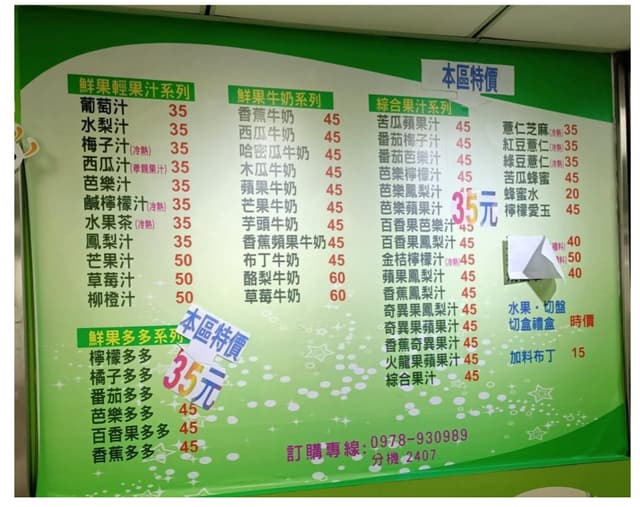 本區特價
鮮果輕果汁系列
葡萄汁 35
水梨汁 35
梅子汁(冷熱) 35
西瓜汁(季節果汁) 35
芭樂汁 35
鹹檸檬汁(冷熱) 35
水果茶(冷熱) 35
鳳梨汁 35
芒果汁 50
草莓汁 50
柳橙汁 50
鮮果多多系列
本區特價
35元
檸檬多多
橘子多多
番茄多多
芭樂多多 45
百香果多多 45
香蕉多多 45
鮮果牛奶系列
香蕉牛奶 45
西瓜牛奶 45
哈密瓜牛奶 45
木瓜牛奶 45
蘋果牛奶 45
芒果牛奶 45
芋頭牛奶 45
香蕉蘋果牛奶 45
布丁牛奶 45
酪梨牛奶 60
草莓牛奶 60
綜合果汁系列
苦瓜蘋果汁 45
番茄梅子汁 45
番茄芭樂汁 45
芭樂檸檬汁 45
芭樂鳳梨汁
芭樂蘋果汁
35元
百香果芭樂汁 45
百香果鳳梨汁 45
金桔檸檬汁(冷熱) 45
蘋果鳳梨汁 45
香蕉鳳梨汁 45
奇異果鳳梨汁 45
奇異果蘋果汁 45
香蕉奇異果汁 45
火龍果蘋果汁 45
綜合果汁 45
薏仁芝麻(冷熱) 35
紅豆薏仁(冷熱) 35
綠豆薏仁(冷熱) 35
苦瓜蜂蜜 45
蜂蜜水 20
檸檬愛玉 45
40
50
40
水果・切盤
切盒禮盒 時價
加料布丁 15
訂購專線：0978-930989
分機 2407